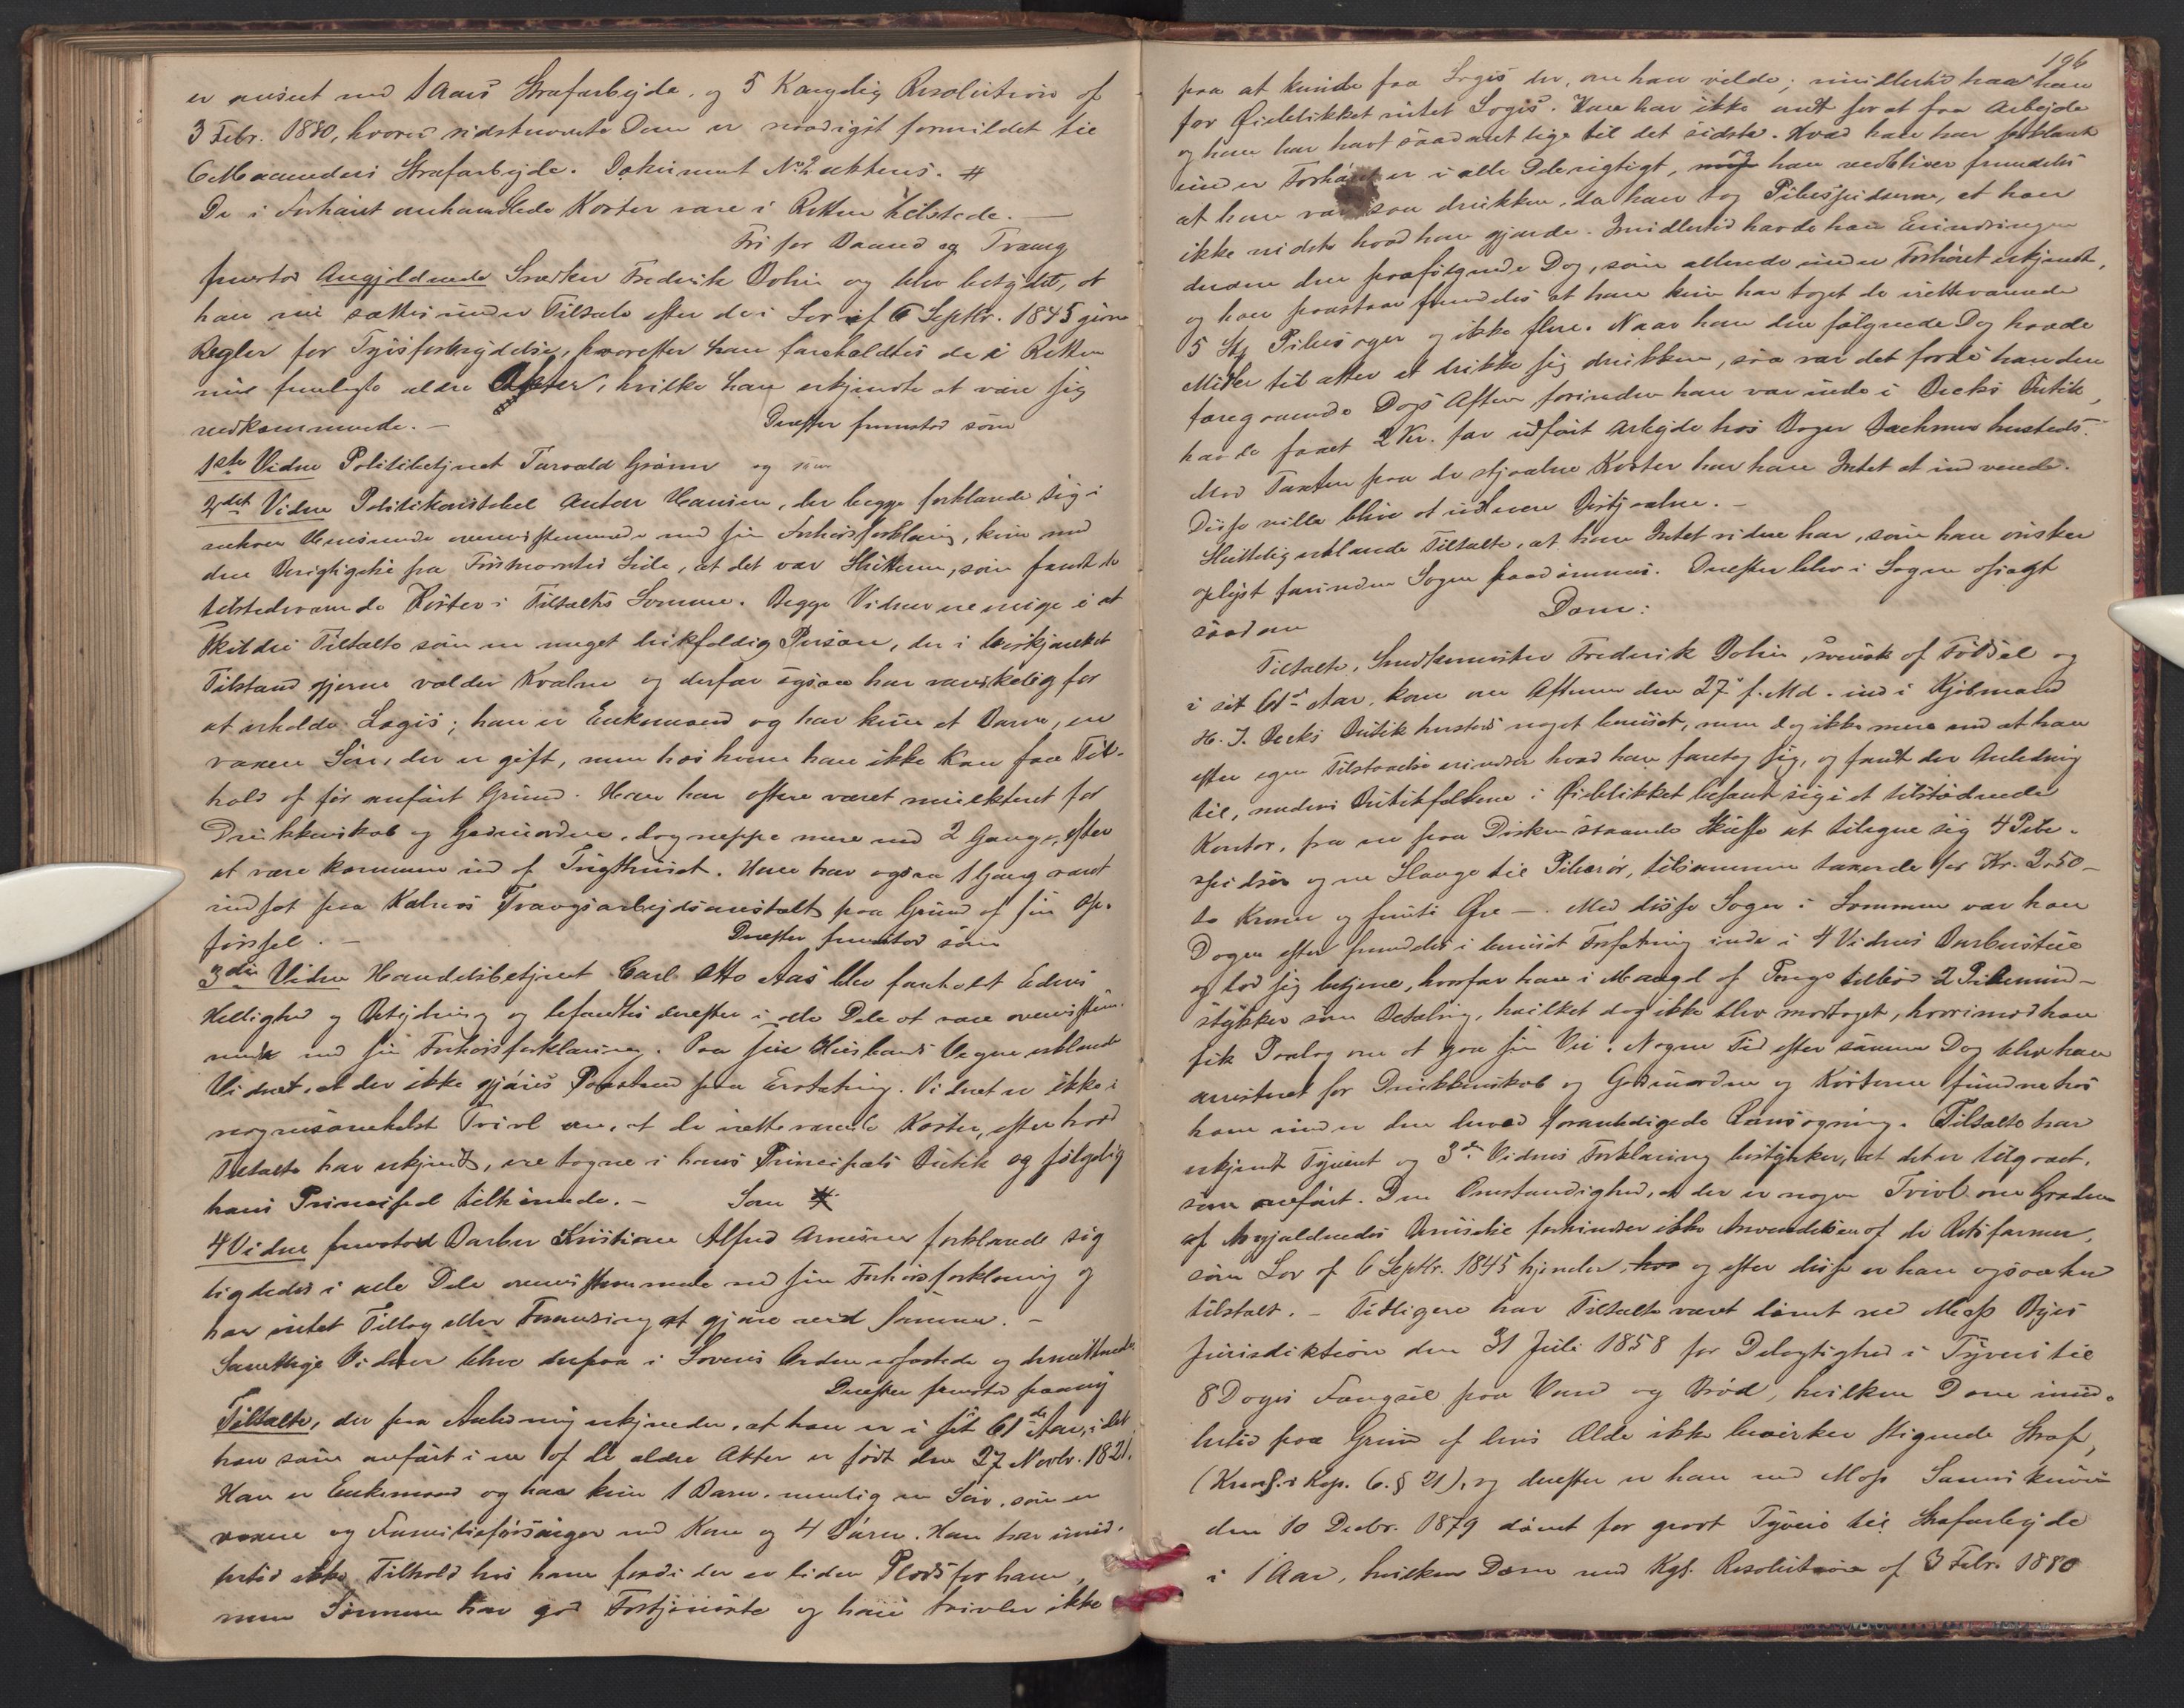 er anseet med 1 Aars Strafarbejde, og 5 Kongelig Resolution af
3 Febr. 1880, hvorved sidstnævnte Dom er naadigst formildet til
6 Maaneders Strafarbejde. Dokument No 2 aktens. #
De i Forhøret omhandlede Koster vare i Retten tilstede. —
Fri for Baand og Tvang
fremstod Angjældende Snedker Frederik Bohn og blev betydet, at
han nu sættes under Tiltale efter de i Lov af 6 Septbr. 1845 givne
Regler for Tyvsforbrydelse, hvorefter han foreholdtes de i Retten
nu fremlagte ældre Akter, hvilke han erkjendte at være sig
vedkommende. — Derefter fremstod som
1ste Vidne Politibetjent Torvald Grønn og som
2det Vidne Politikonstabel Anton Hansen, der begge forklarede sig i
enhver Henseende overensstemmende med sin Forhørsforklaring, kun med
den Berigtigelse fra Førstnævntes Side, at det var Slutteren, som fandt de
tilstedeværende Koster i Tiltaltes Lomme. Begge Vidner ere enige i at
skildre Tiltalte som en meget drikfældig Person, der i beskjænket
Tilstand gjerne volder Kvalm og derfor ogsaa har vanskelig for
at erholde Logis; han er Enkemand og har kun et Barn, en
voxen Søn, der er gift, men hos hvem han ikke kan faa Til-
hold af før anført Grund. Han har oftere været mulkteret for
Drukkenskab og Gadeuorden, dog neppe mere end 2 Gange, efter
at være kommen ud af Tugthuset. Han har ogsaa 1 Gang været
indsat paa Kalvøs Tvangsarbejdsanstalt paa Grund af sin Op-
førsel. — Derefter fremstod som
3die Vidne Handelsbetjent Carl Otto Aas blev foreholdt Edens
Hellighed og Betydning og befandtes derefter i alle Dele at være overensstem-
mende med sin Forhørsforklaring. Paa sin Husbonds Vegne erklærede
Vidnet, at der ikke gjøres Paastand paa Erstatning. Vidnet er ikke i
nogensomhelst Tvivl om, at de iretteværende Koster, efter hvad
Tiltalte har erkjendt, ere tagne i hans Principals Butik og følgelig
hans Principal tilhørende. — Som
4 Vidne fremstod Barber Kristian Alfred Arnesen forklarede sig
ligeledes i alle Dele overensstemmende med sin Forhørsforklaring og
har intet Tillæg eller Forandring at gjøre ved samme. —
Samtlige Vidner bleve derpaa i Lovens Orden edfæstede og demitterede
Derefter fremstod paany
Tiltalte, der paa Anledning erkjender, at han er i sit 61de Aar, idet
han som anført i en af de ældre Akter er født den 27 Novbr. 1821.
Han er Enkemand og har kun 1 Barn, nemlig en Søn, som er
voxen og Familieforsørger med Kone og 4 Børn. Han har imid-
lertid ikke Tilhold hos ham fordi der er liden Plads for ham,
men Sønnen har god Fortjeneste og han tvivler ikke
196
paa at kunde faa Logis der, om han vilde; imidlertid har han
for Øieblikket intet Logis. Han har ikke ondt for at faa Arbejde
og han har havt saadant lige til det sidste. Hvad han har forklaret
under Forhøret er i alle Dele rigtigt, og han vedbliver fremdeles
at han var saa drukken, da han tog Pibespidserne, at han
ikke vidste hvad han gjorde. Imidlertid havde han Erindringen
derom den paafølgende Dag, som allerede under Forhøret erkjendt,
og han paastaar fremdeles at han kun har taget de iretteværende
5 Stk Pibesager og ikke flere. Naar han den følgende Dag havde
Midler til atter at drikke sig drukken, saa var det fordi han den
foregaaende Dags Aften forinden han var inde i Becks Butik,
havde faaet 2 Kr. for udført Arbejde hos Bager Bachmann husteds.
Mod Taxten paa de stjaalne Koster har han Intet at indvende.
Disse ville blive at udlevere Bestjaalne. —
Sluttelig erklærede Tiltalte, at han Intet videre har, som han ønsker
oplyst forinden Sagen paadømmes. Derefter blev i Sagen afsagt
saadan Dom:
Tiltalte, Snedkermester Frederik Bohn, svensk af Fødsel og
i sit 61de Aar, kom om Aftenen den 27de f. Md. ind i Kjøbmand
H. J. Becks Butik husteds noget beruset, men dog ikke mere end at han
efter egen Tilstaaelse erindrer hvad han foretog sig, og fandt der Anledning
til, medens Butikfolkene i Øieblikket befandt sig i et tilstødende
Kontor, fra en paa Disken staaende Skuffe at tilegne sig 4 Pibe-
spidser og en Slange til Piberør, tilsammen taxerede for Kr. 2.50 —
to Kroner og femti Øre —. Med disse Sager i Lommen var han
Dagen efter fremdeles i beruset Forfatning inde i 4 Vidnes Barberstue
og lod sig betjene, hvorfor han i Mangel af Penge tilbød 2 Pibemund-
stykker som Betaling, hvilket dog ikke blev modtaget, hvorimod han
fik Paalæg om at gaa sin Vei. Nogen Tid efter samme Dag blev han
arresteret for Drukkenskab og Gadeuorden og Kosterne fundne hos
ham under den derved foranledigede Ransagning. Tiltalte har
erkjendt Tyveriet og 3die Vidnes Forklaring bestyrker, at det er tilgaaet,
som anført. Den Omstændighed, at der er nogen Tvivl om Graden
af Angjældendes Beruselse forhindrer ikke Anvendelsen af de Retsformer,
som Lov af 6 Septbr. 1845 hjemler, og efter disse er han ogsaa her
tiltalt. — Tidligere har Tiltalte været dømt ved Moss Byes
Jurisdiktion den 31 Juli 1858 for Delagtighed i Tyveri til
8 Dages Fængsel paa Vand og Brød, hvilken Dom imid-
lertid paa Grund af dens Ælde ikke bevirker stigende Straf,
(Krmsl.s Kap. 6. § 21), og derefter er han ved Moss
den 10 Decbr. 1879 dømt for grovt Tyveri til Strafarbejde
i 1 Aar, hvilken Dom ved Kgl. Resolution af 3 Febr. 1880